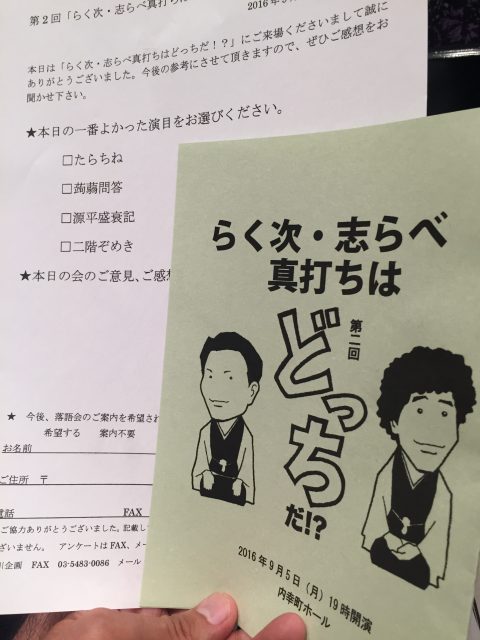 第2回「らく次・志らべ真打ちは
2016年9月
本日は「らく次・志らべ真打ちはどっちだ！？」にご来場くださいまして誠に
ありがとうございました。今後の参考にさせて頂きますので、ぜひご感想をお
聞かせ下さい。
★本日の一番よかった演目をお選びください。
□たらちね
□蒟蒻問答
□源平盛衰記
□二階ぞめき
★本日の会のご意見、ご感想
★ 今後、落語会のご案内を希望され
希望する 案内不要
お名前
ご住所 〒
電話 FAX
ご協力ありがとうございました。記載し
ざいません。 アンケートはFAX、メー
企画 FAX 03-5483-0086 メール
らく次・志らべ
真打ちは
第二回
どっち
だ!?
2016年9月5日（月）19時開演
内幸町ホール